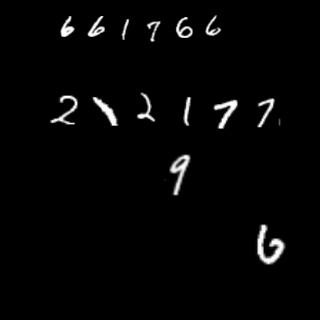 661766
212177
9
6